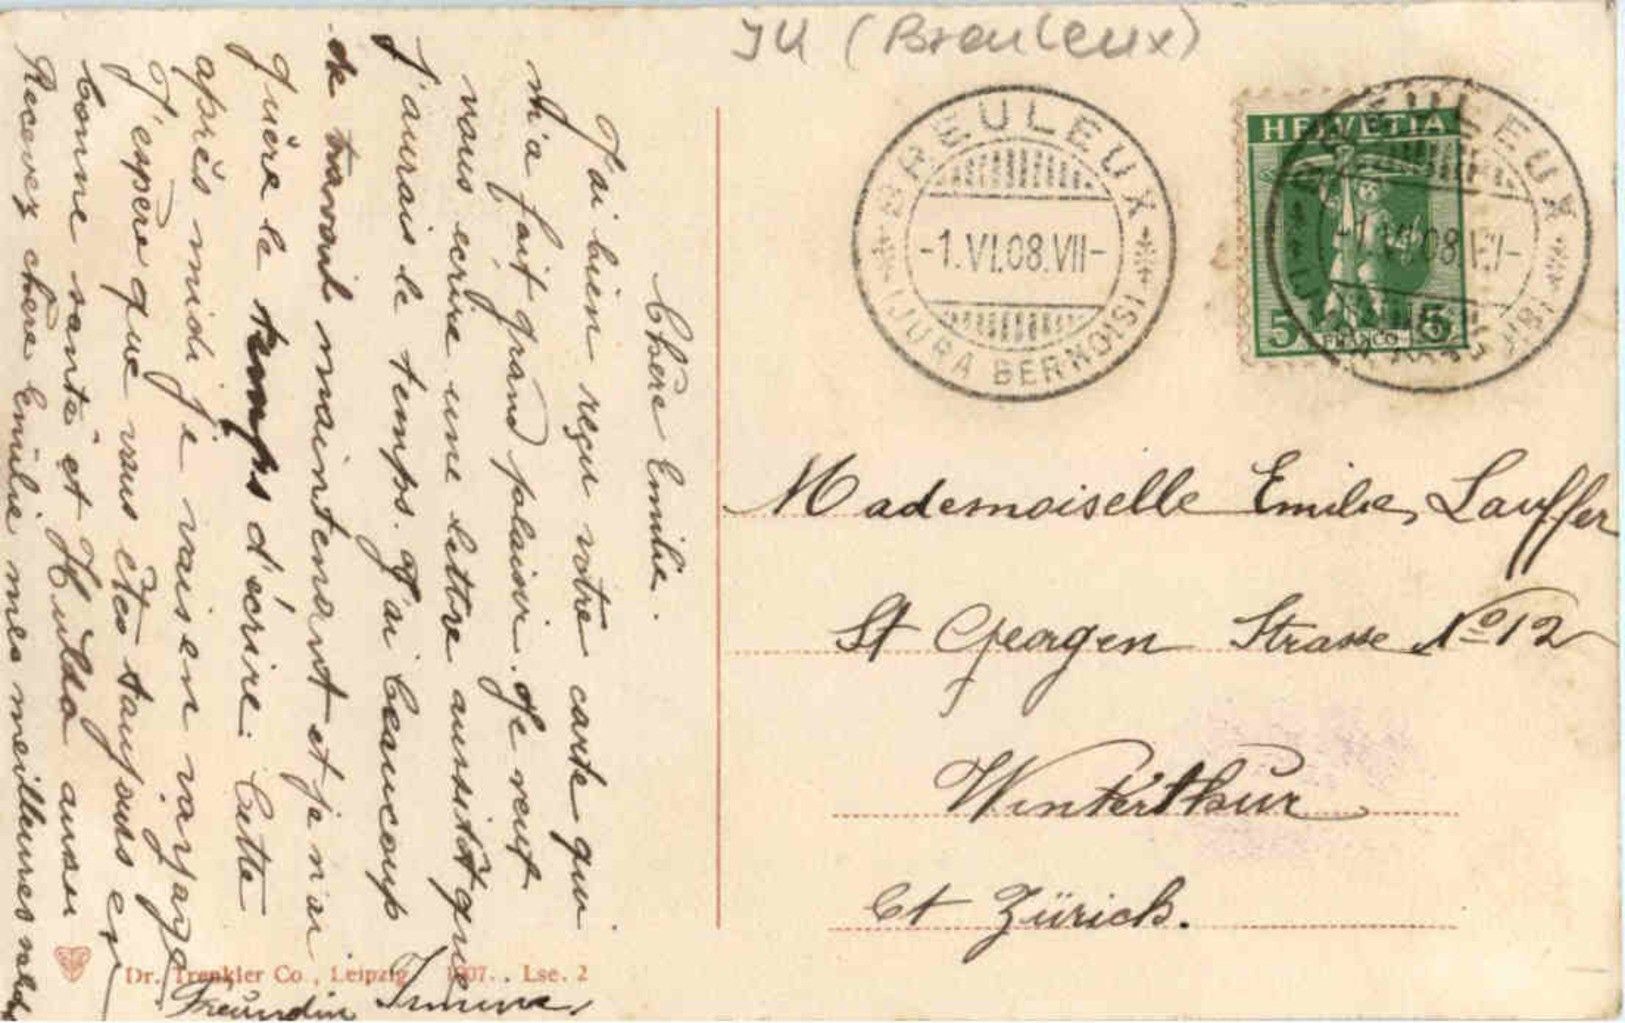 JU (Breuleux)
BREULEUX
-1.VI.08.VII-
(JURA BERNOIS)
HELVETIA
5 FRANCO 5
BREULEUX
-1.VI.08.VII-
Mademoiselle Emilie Lauffer
St Georgen Strasse No 12
Winterthur
Ct Zürich.
Chère Emilie.
J'ai bien reçu votre carte qui
m'a fait grand plaisir. Je veux
vous ecrire une lettre aussitôt que
j'aurais le temps. J'ai beaucoup
de travail maintenant et je n'ai
guère le temps d'écrire. Cette
après midi je vais en voyage
J'espère que vous êtes toujours en
bonne santé et Hulda aussi
Recevez chère Emilie mes meilleures
Freundin
Dr. Trenkler Co., Leipzig. 1907. Lse. 2